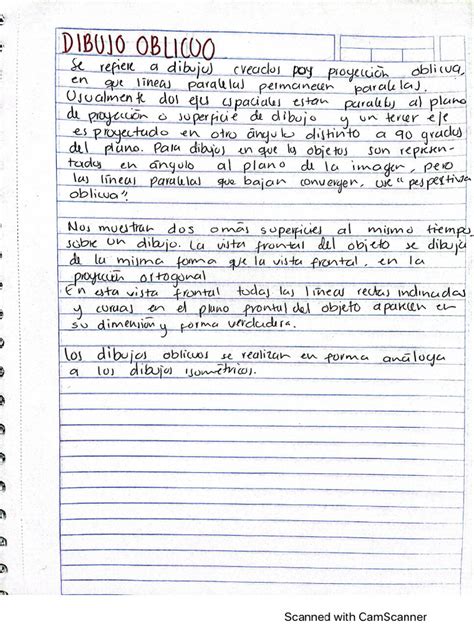 DIBUJO OBLICUO
Se refiere a dibujos creados por proyección oblicua,
en que líneas paralelas permanecen paralelas.
Usualmente dos ejes espaciales estan paralelos al plano
de proyección o superficie de dibujo y un tercer eje
es proyectado en otro ángulo distinto a 90 grados
del plano. Para dibujos en que los objetos son represen-
tados en ángulo al plano de la imagen, pero
las líneas paralelas que bajan converger, use "perspectiva
oblicua".
Nos muestran dos o más superficies al mismo tiempo
sobre un dibujo. La vista frontal del objeto se dibuja
de la misma forma que la vista frontal, en la
proyección ortogonal
En esta vista frontal todas las líneas rectas inclinadas
y curvas en el plano frontal del objeto aparecen en
su dimensión y forma verdadera.
Los dibujos oblicuos se realizan en forma análoga
a los dibujos isométricos.
Scanned with CamScanner